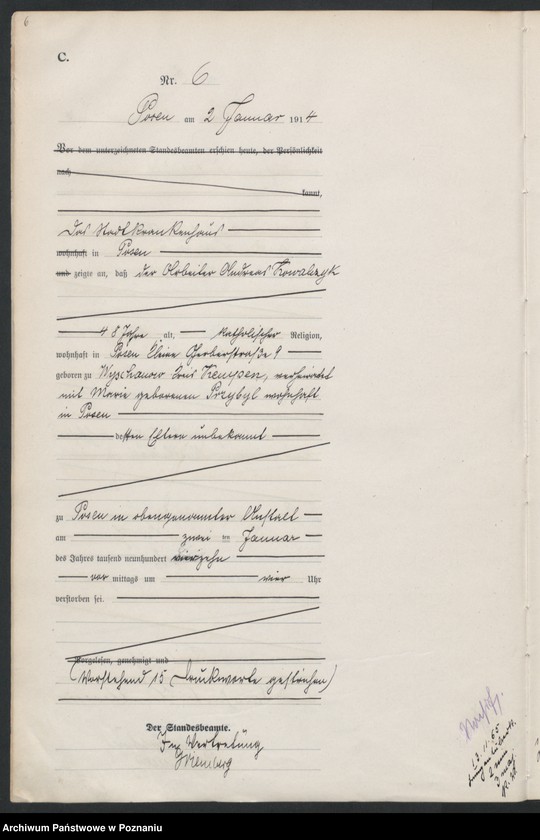 6
C.
Nr. 6
Posen am 2 Januar 1914
Vor dem unterzeichneten Standesbeamten erschien heute, der Persönlichkeit
nach
kannt,
Das Stadtkrankenhaus
wohnhaft in Posen
und zeigte an, daß der Arbeiter Andreas Kowalczyk
48 Jahre alt, katholischer Religion,
wohnhaft in Posen kleine Gerberstraße 9
geboren zu Kreis Kempen, verheiratet
mit Marie geborenen Przybyl wohnhaft
in Posen
dessen Eltern unbekannt
zu Posen in obengenannter Anstalt
am zwei ten Januar
des Jahres tausend neunhundert vierzehn
vor mittags um vier Uhr
verstorben sei.
Vorgelesen, genehmigt und
(Vorstehend 15 Druckworte gestrichen)
Der Standesbeamte.
In Vertretung
Archiwum Państwowe w Poznaniu